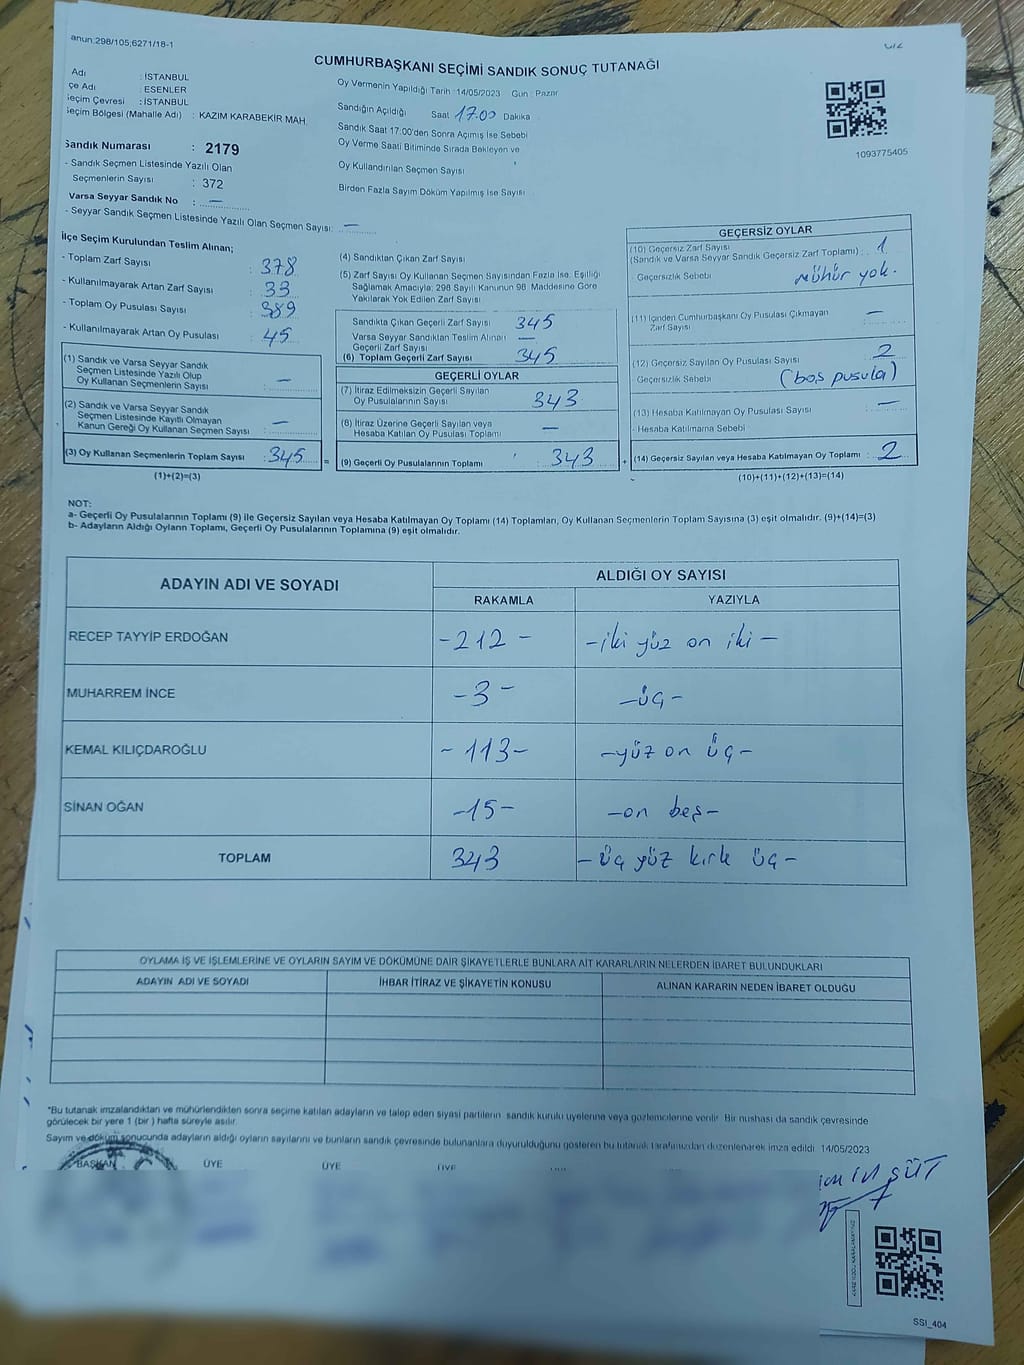 anun:298/105;6271/18-1
CUMHURBAŞKANI SEÇİMİ SANDIK SONUÇ TUTANAĞI
Adı : İSTANBUL
çe Adı : ESENLER
eçim Çevresi : İSTANBUL
eçim Bölgesi (Mahalle Adı) : KAZIM KARABEKİR MAH.
Sandık Numarası : 2179
- Sandık Seçmen Listesinde Yazılı Olan
Seçmenlerin Sayısı : 372
Varsa Seyyar Sandık No : —
- Seyyar Sandık Seçmen Listesinde Yazılı Olan Seçmen Sayısı: —
Oy Vermenin Yapıldığı Tarih :14/05/2023 Gün : Pazar
Sandığın Açıldığı Saat 17.00 Dakika
Sandık Saat 17:00'den Sonra Açımış İse Sebebi
Oy Verme Saati Bitiminde Sırada Bekleyen ve
Oy Kullandırılan Seçmen Sayısı
Birden Fazla Sayım Döküm Yapılmış İse Sayısı
1093775405
İlçe Seçim Kurulundan Teslim Alınan;
- Toplam Zarf Sayısı : 378
- Kullanılmayarak Artan Zarf Sayısı : 33
- Toplam Oy Pusulası Sayısı : 389
- Kullanılmayarak Artan Oy Pusulası : 45
(1) Sandık ve Varsa Seyyar Sandık
Seçmen Listesinde Yazılı Olup
Oy Kullanan Seçmenlerin Sayısı : —
(2) Sandık ve Varsa Seyyar Sandık
Seçmen Listesinde Kayıtlı Olmayan
Kanun Gereği Oy Kullanan Seçmen Sayısı : —
(3) Oy Kullanan Seçmenlerin Toplam Sayısı : 345 =
(1)+(2)=(3)
(4) Sandıktan Çıkan Zarf Sayısı
(5) Zarf Sayısı Oy Kullanan Seçmen Sayısından Fazla İse, Eşitliği
Sağlamak Amacıyla; 298 Sayılı Kanunun 98. Maddesine Göre
Yakılarak Yok Edilen Zarf Sayısı
Sandıkta Çıkan Geçerli Zarf Sayısı 345
Varsa Seyyar Sandıktan Teslim Alınan
Geçerli Zarf Sayısı —
(6) Toplam Geçerli Zarf Sayısı 345
GEÇERLİ OYLAR
(7) İtiraz Edilmeksizin Geçerli Sayılan
Oy Pusulalarının Sayısı 343
(8) İtiraz Üzerine Geçerli Sayılan veya
Hesaba Katılan Oy Pusulası Toplamı —
(9) Geçerli Oy Pusulalarının Toplamı : 343 +
GEÇERSİZ OYLAR
(10) Geçersiz Zarf Sayısı
(Sandık ve Varsa Seyyar Sandık Geçersiz Zarf Toplamı) : 1
Geçersizlik Sebebi mühür yok.
(11) İçinden Cumhurbaşkanı Oy Pusulası Çıkmayan
Zarf Sayısı —
(12) Geçersiz Sayılan Oy Pusulası Sayısı 2
Geçersizlik Sebebi (boş pusula)
(13) Hesaba Katılmayan Oy Pusulası Sayısı —
- Hesaba Katılmama Sebebi
(14) Geçersiz Sayılan veya Hesaba Katılmayan Oy Toplamı : 2
(10)+(11)+(12)+(13)=(14)
NOT:
a- Geçerli Oy Pusulalarının Toplamı (9) ile Geçersiz Sayılan veya Hesaba Katılmayan Oy Toplamı (14) Toplamları, Oy Kullanan Seçmenlerin Toplam Sayısına (3) eşit olmalıdır. (9)+(14)=(3)
b- Adayların Aldığı Oyların Toplamı, Geçerli Oy Pusulalarının Toplamına (9) eşit olmalıdır.
ADAYIN ADI VE SOYADI
ALDIĞI OY SAYISI
RAKAMLA YAZIYLA
RECEP TAYYİP ERDOĞAN -212- -iki yüz on iki-
MUHARREM İNCE -3- -üç-
KEMAL KILIÇDAROĞLU -113- -yüz on üç-
SİNAN OĞAN -15- -on beş-
TOPLAM 343 -üç yüz kırk üç-
OYLAMA İŞ VE İŞLEMLERİNE VE OYLARIN SAYIM VE DÖKÜMÜNE DAİR ŞİKAYETLERLE BUNLARA AİT KARARLARIN NELERDEN İBARET BULUNDUKLARI
ADAYIN ADI VE SOYADI İHBAR İTİRAZ VE ŞİKAYETİN KONUSU ALINAN KARARIN NEDEN İBARET OLDUĞU
*Bu tutanak imzalandıktan ve mühürlendikten sonra seçime katılan adayların ve talep eden siyasi partilerin sandık kurulu üyelerine veya gözlemcilerine verilir. Bir nushası da sandık çevresinde
görülecek bir yere 1 (bir ) hafta süreyle asılır.
Sayım ve döküm sonucunda adayların aldığı oyların sayılarını ve bunların sandık çevresinde bulunanlara duyurulduğunu gösteren bu tutanak tarafımızdan düzenlenerek imza edildi. 14/05/2023
BAŞKAN ÜYE ÜYE ÜYE
SSI_404